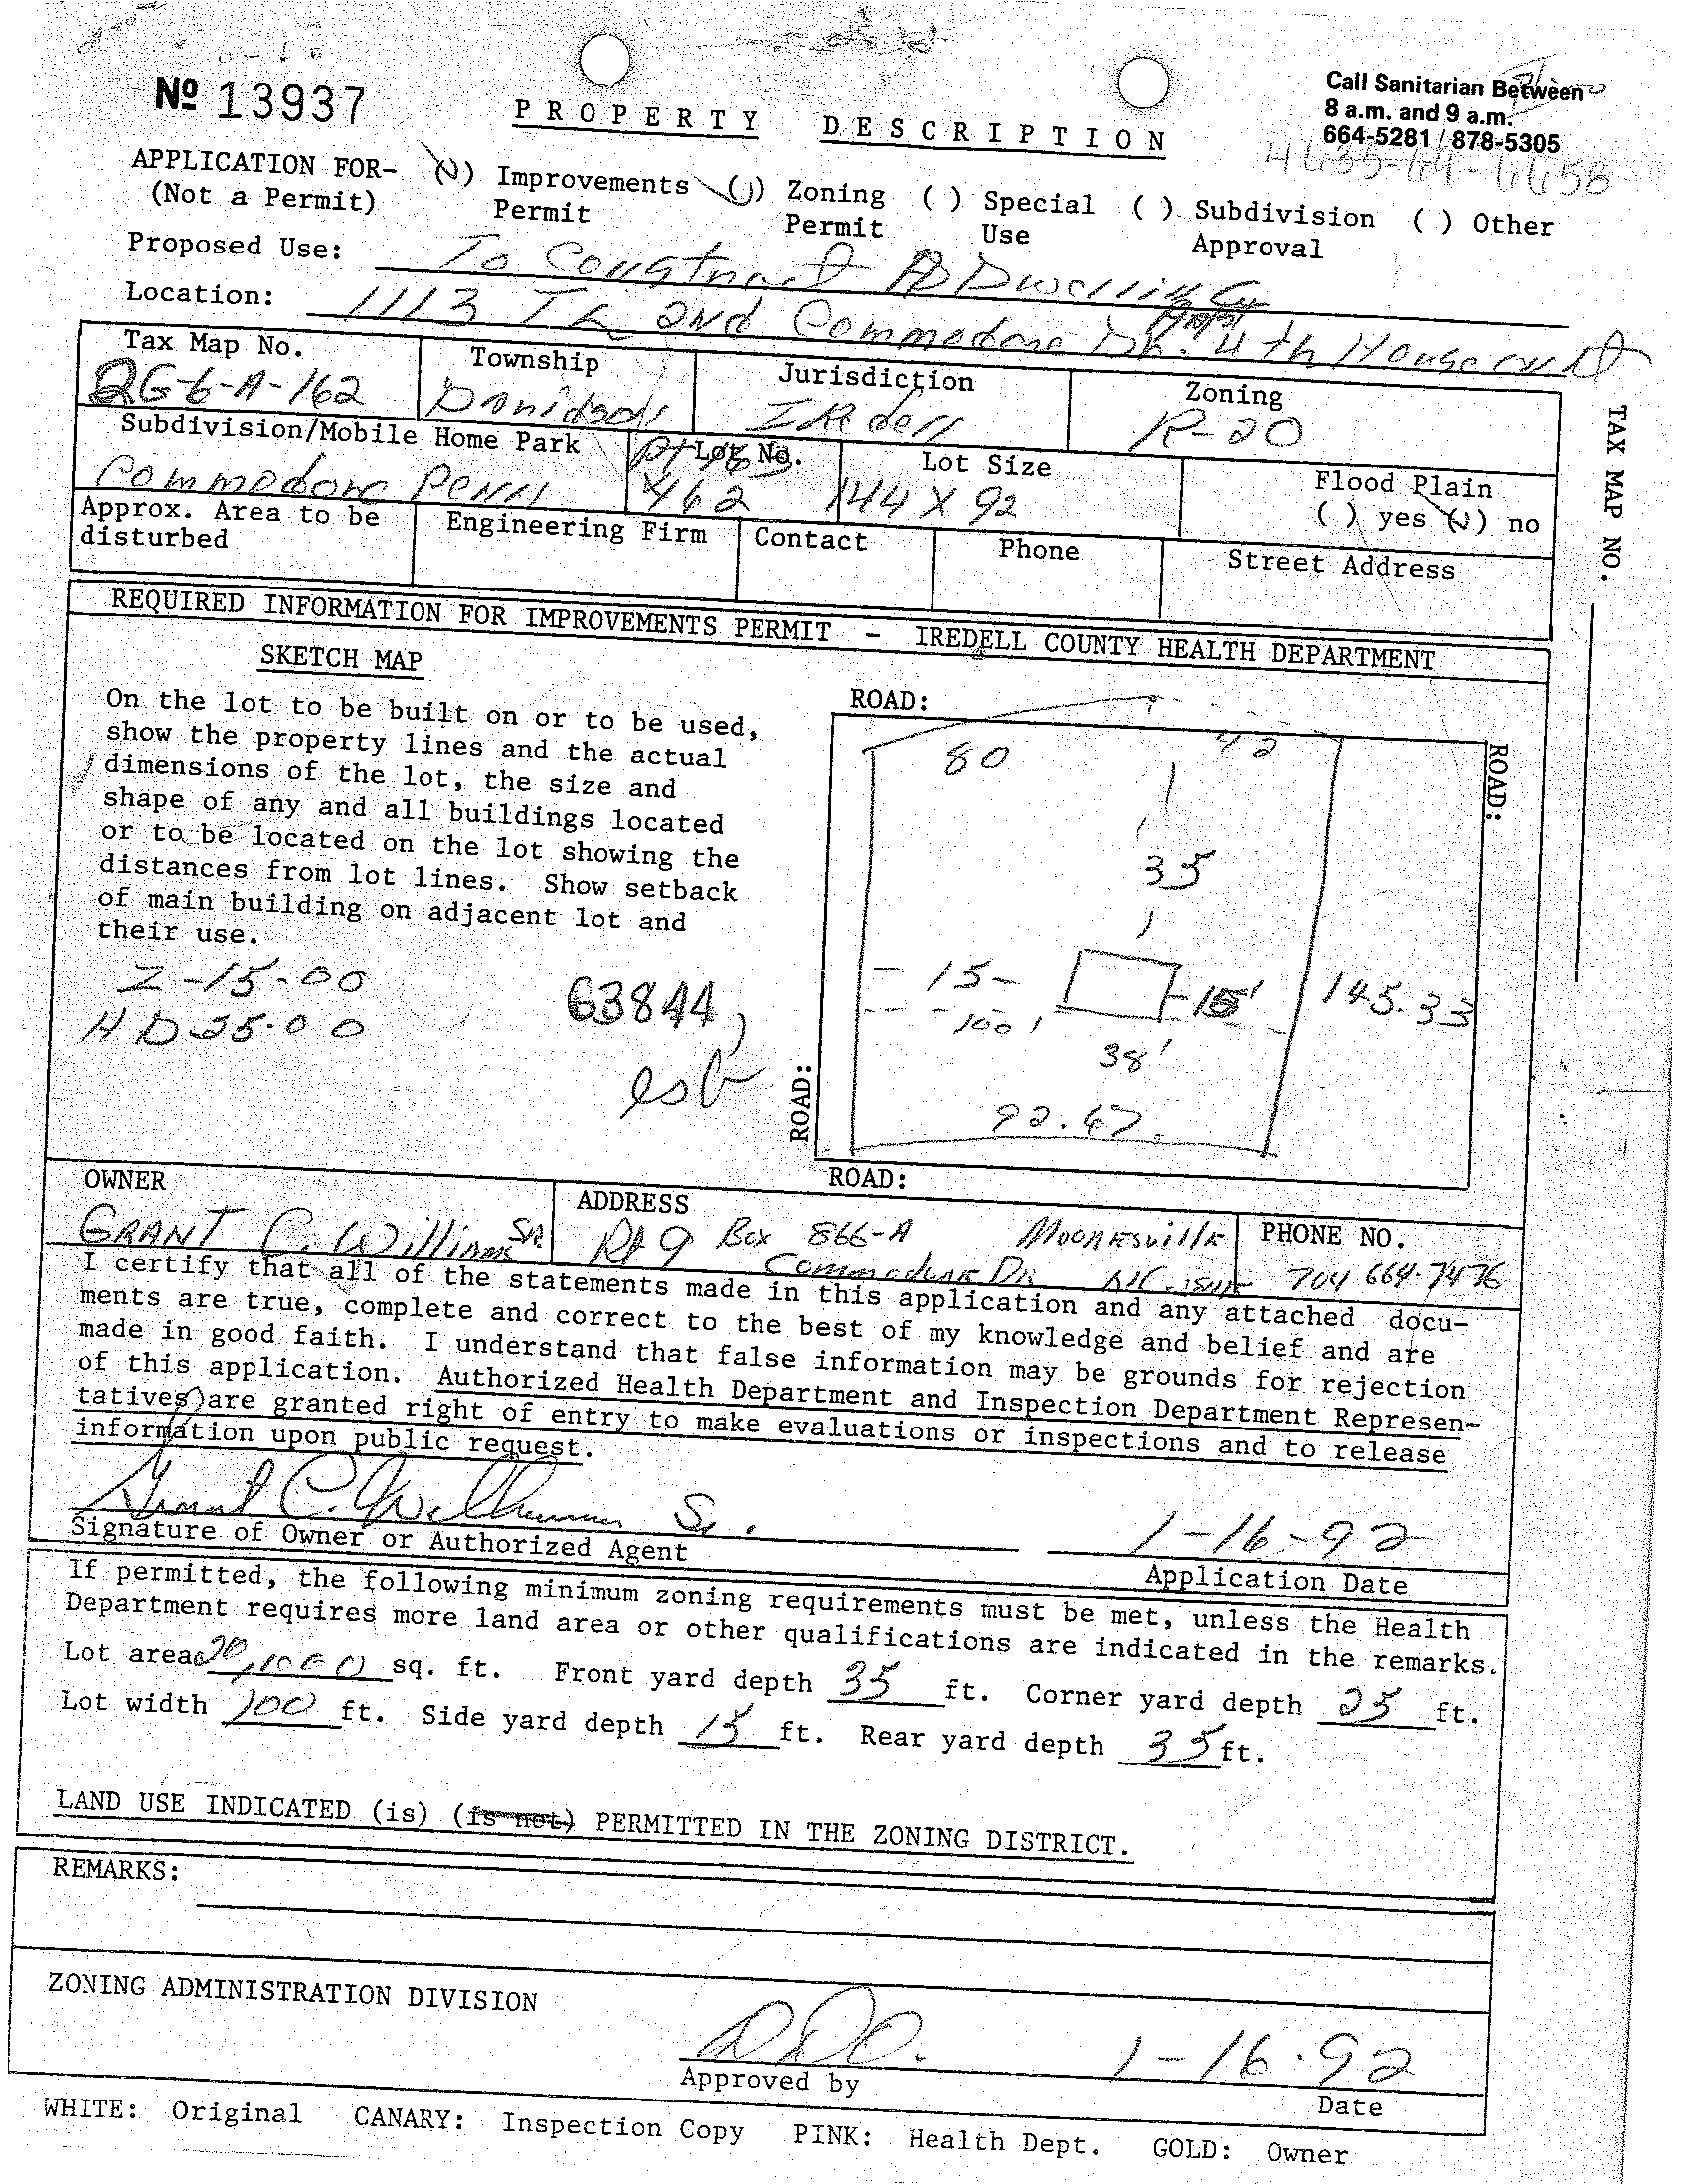 Nº 13937
PROPERTY DESCRIPTION
Call Sanitarian Between
8 a.m. and 9 a.m.
664-5281 / 878-5305
APPLICATION FOR- (✓) Improvements (✓) Zoning ( ) Special ( ) Subdivision ( ) Other
(Not a Permit) Permit Permit Use Approval
Proposed Use: To Construct A Dwelling
Location: 1113 TL 2nd Commodore Dr. 4th House
Tax Map No. Township Jurisdiction Zoning
2G-6-A-162 Davidson IRedell R-20
Subdivision/Mobile Home Park Lot No. Lot Size Flood Plain
Commodore Penn 462 144 X 92 ( ) yes (✓) no
Approx. Area to be disturbed Engineering Firm Contact Phone Street Address
TAX MAP NO.
REQUIRED INFORMATION FOR IMPROVEMENTS PERMIT - IREDELL COUNTY HEALTH DEPARTMENT
SKETCH MAP
On the lot to be built on or to be used,
show the property lines and the actual
dimensions of the lot, the size and
shape of any and all buildings located
or to be located on the lot showing the
distances from lot lines. Show setback
of main building on adjacent lot and
their use.
Z-15.00
HD25.00
63844
esb
ROAD:
ROAD:
80 42
35
- 15 - - 15' 145.33
100'
38'
92.67
ROAD:
ROAD:
OWNER ADDRESS PHONE NO.
GRANT C. Williams SR Rt 9 Box 866-A Mooresville
Commodore Dr NC 704 664-7476
I certify that all of the statements made in this application and any attached docu-
ments are true, complete and correct to the best of my knowledge and belief and are
made in good faith. I understand that false information may be grounds for rejection
of this application. Authorized Health Department and Inspection Department Represen-
tatives are granted right of entry to make evaluations or inspections and to release
information upon public request.
Grant C. Williams Sr.
1-16-92
Signature of Owner or Authorized Agent Application Date
If permitted, the following minimum zoning requirements must be met, unless the Health
Department requires more land area or other qualifications are indicated in the remarks.
Lot area 20,000 sq. ft. Front yard depth 35 ft. Corner yard depth 25 ft.
Lot width 100 ft. Side yard depth 15 ft. Rear yard depth 35 ft.
LAND USE INDICATED (is) (is not) PERMITTED IN THE ZONING DISTRICT.
REMARKS:
ZONING ADMINISTRATION DIVISION
1-16-92
Approved by Date
WHITE: Original CANARY: Inspection Copy PINK: Health Dept. GOLD: Owner